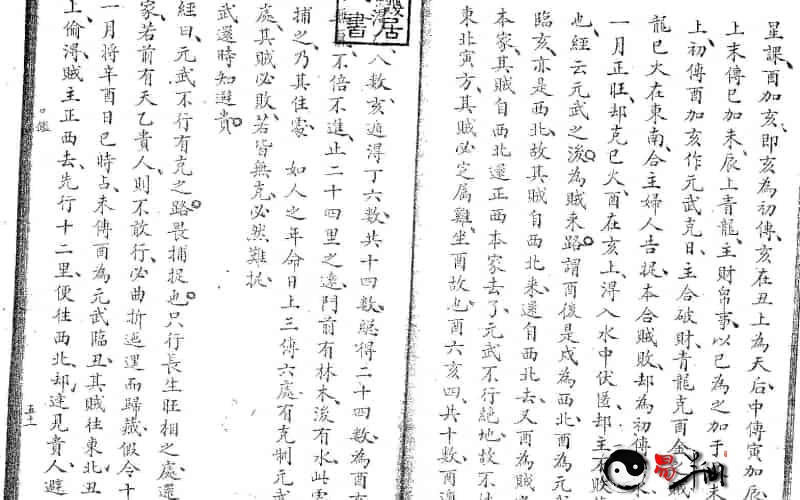 星課酉加亥即亥為初傳亥在丑上為天后中傳寅加辰
上末傳巳加未辰上青龍主財帛事以巳為之加于
上初傳酉加亥作元武克日主合破財青龍克酉金
龍巳火在東南合主婦人告捉本合賊敗却為初傳
一月正旺却克巳火酉在亥上得入水中伏匿却主不敗
也經云元武之後為賊來路謂酉後是戌為西北酉為元
臨亥亦是西北故其賊自西北來還自西北去又酉為
本家其賊自西北還正西本家去了元武不行絕地故不
東北寅方其賊必定屬雞坐酉故也酉六亥四共十數酉
八數亥遊得丁六數共十四數總得二十四數為酉亥
不倍不進止二十四里之遠門前有林木後有水此
捕之乃其住處 如人之年命日上三傳六處有克制元武
處其賊必敗若皆無克必然難捉
武還時知避貴
經曰元武不行有克之路畏捕捉也只行長生旺相之處還
家若前有天乙貴人則不敢行必曲折迤邐而歸藏假今十
一月將辛酉日巳時占末傳酉為元武臨丑其賊往東北丑
上偷得賊主正西去先行十二里便往西北却逢見貴人避
鑑
五十
居
書
易